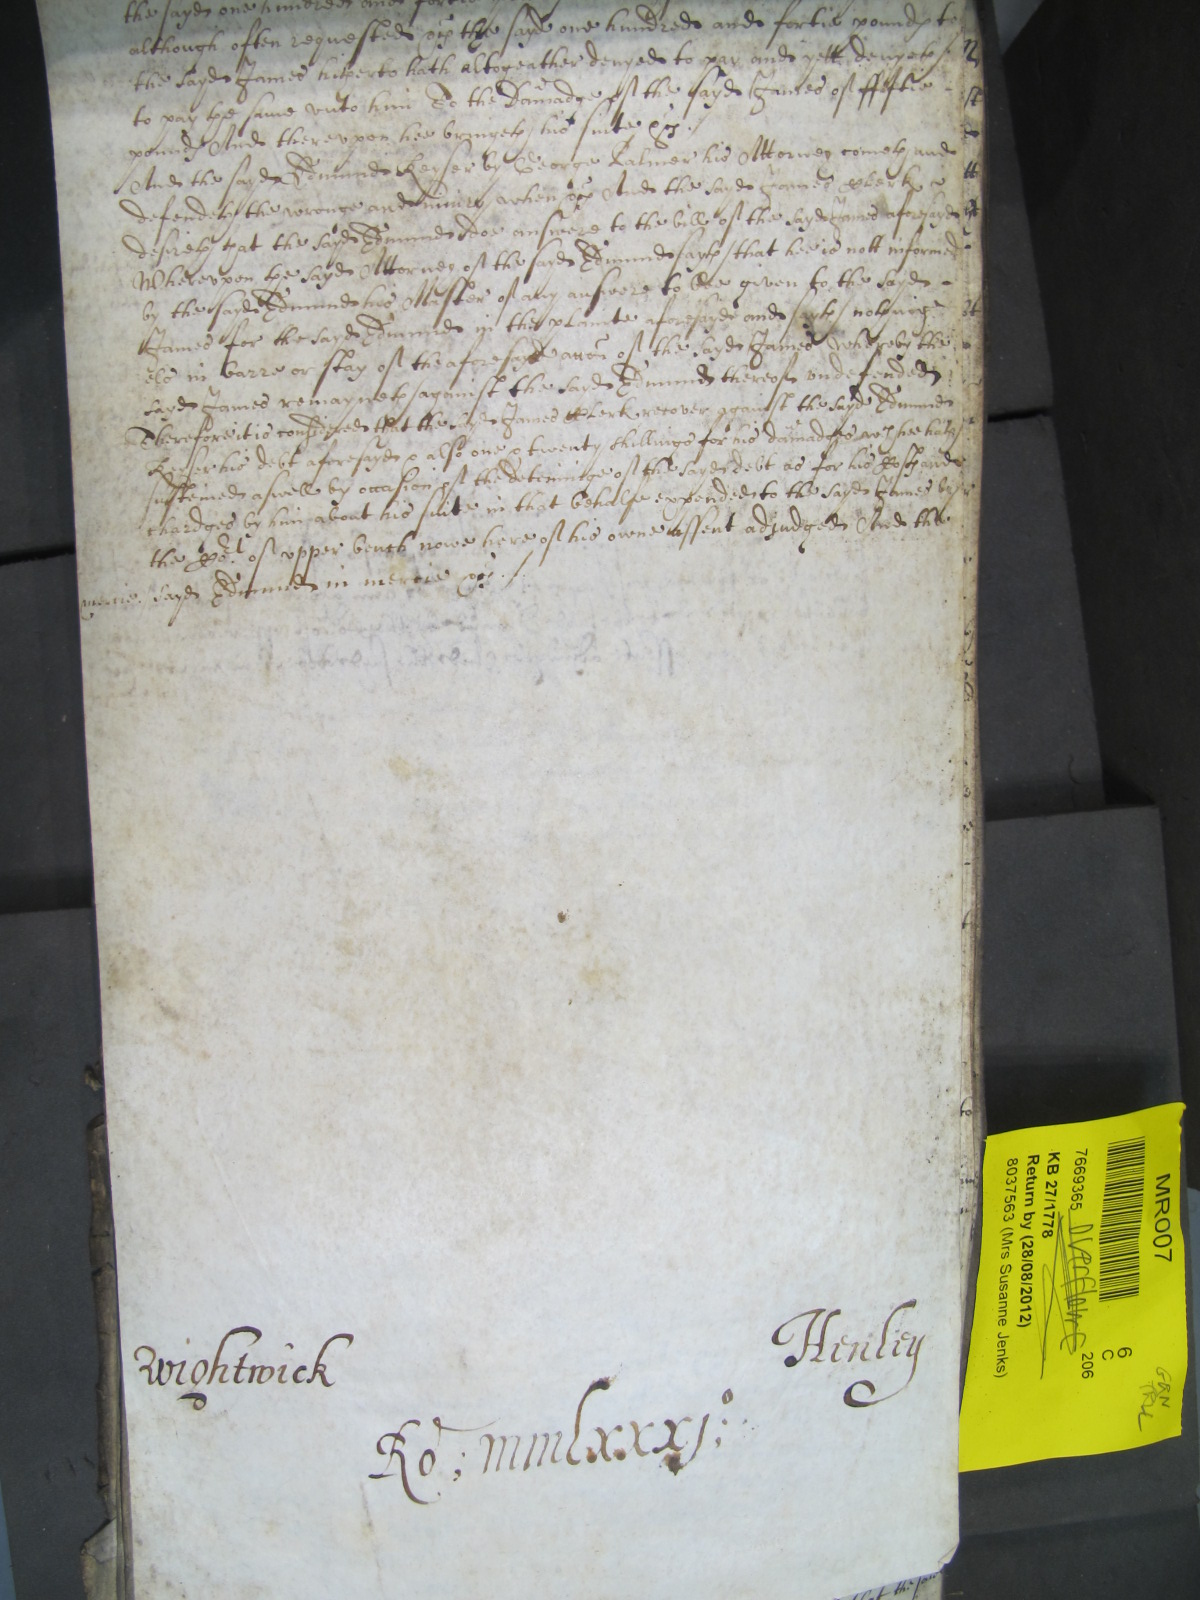 the sayd one hundred and fortie
although often requested &c the sayd one hundred and fortie pounds to
the sayd James hitherto hath altogeather denyed to pay and yett denyeth
to pay the same unto him To the damadge of the sayd James of ffiftie
pounds And thereupon hee bringeth his suite &c./
And the sayd Edmund Keyser by George Palmer his Attorney cometh and
defendeth the wronge and iniury when &c And the sayd James Clerk
desireth that the sayd Edmund doe answere to the bill of the sayd James aforesayd
Whereupon the sayd Attorney of the sayd Edmund sayth that hee is nott informed
by the sayd Edmund his Master of any answere to bee given to the sayd
James for the sayd Edmund in the plainte aforesayd and sayth nothing
els in barre or stay of the aforesayd accon of the sayd James Whereby the
sayd James remayneth against the sayd Edmund thereof undefended
Therefore it is considered that the sayd James Clerk recover against the sayd Edmund
Keyser his debt aforesayd & also one & twenty shillings for his damadges wch hee hath
susteined aswell by occasion of the deteininge of the sayd debt as for his Costs and
chardges by him about his suite in that behalfe expended to the sayd James by
the Cort of upper bench nowe here of his owne assent adjudged And the
mercie. sayd Edmund in mercie &c./
Wightwick
Henley
Ro: mmlxxxj:o
MR007
7669365
KB 27/1778
Return by (28/08/2012)
8037563 (Mrs Susanne Jenks)
6
C
206